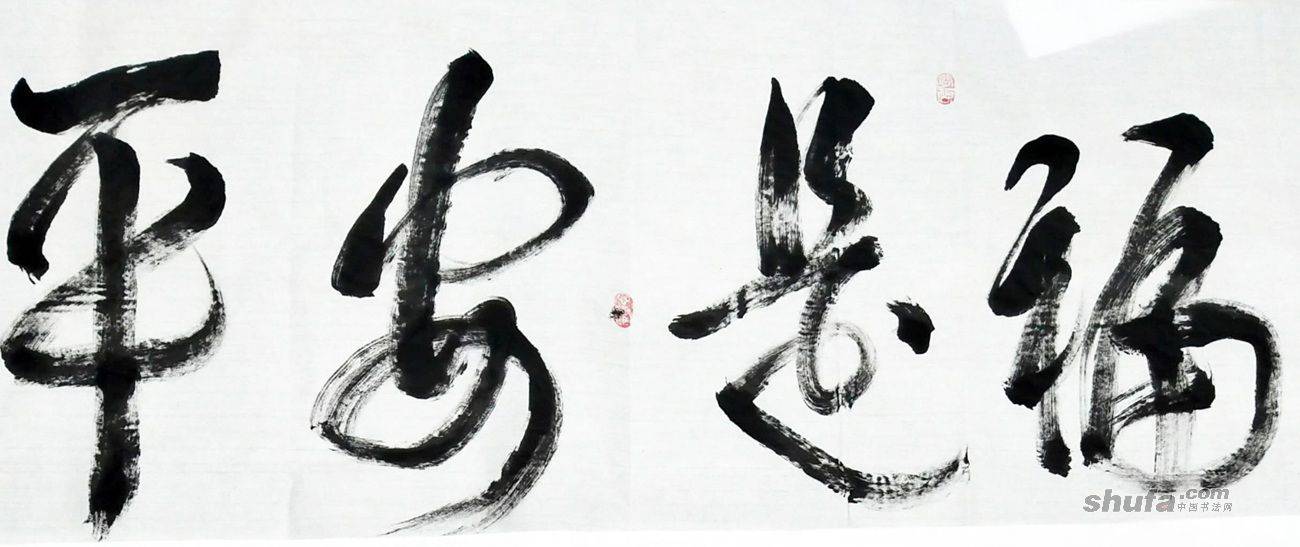 平安是福
shufa.com
中国书法网